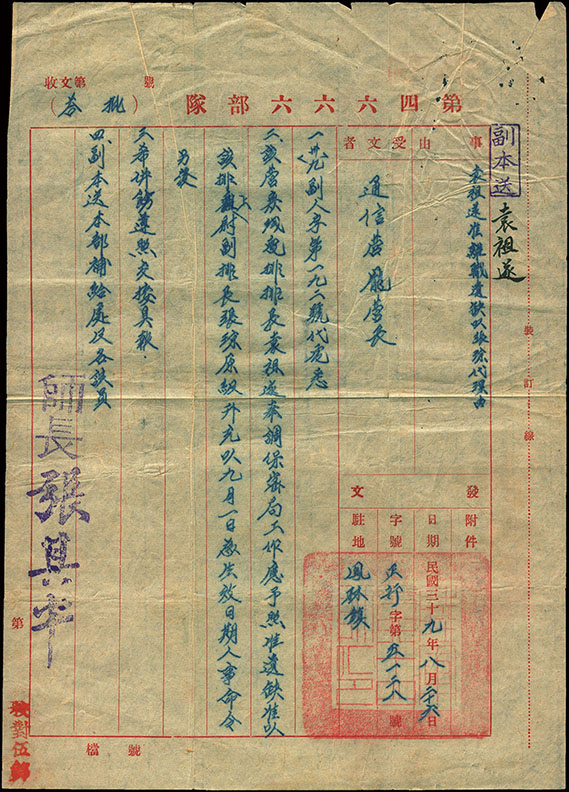 收文第 號
第四六六六部隊（批答）
副本送 袁祖遂
事由
袁祖遂准離職遺缺以張琮代理由
受文者
通信營龐營長
發文
附件
日期 民國三十九年八月二十六日
字號 字第 號
駐地 鳳林鎮
副人字第一九二號代電悉
二、該營架線排排長袁祖遂奉調保密局工作應予照准遺缺准以
該排 尉副排長張琮原級升充以九月一日為生效日期人事命令
另發
三、希併飭遵照交接具報．
四、副本送本部補給處及各該員
師長 張其中
裝訂線
第
檔號
校對伍